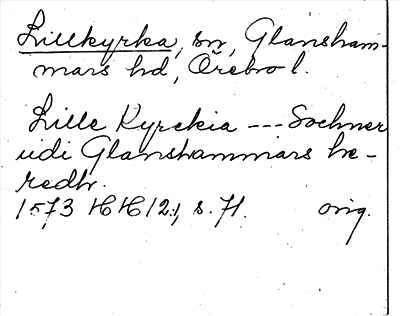 Lillkyrka, sn, Glansham-
mars hd, Örebro l.
Lille Kyrckia --- Sochner
udi Glanshammars he-
redhr.
1573 HH 12:1, s. 71. orig.